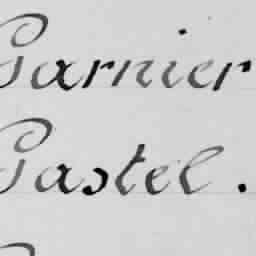 Garnier
Gastel.